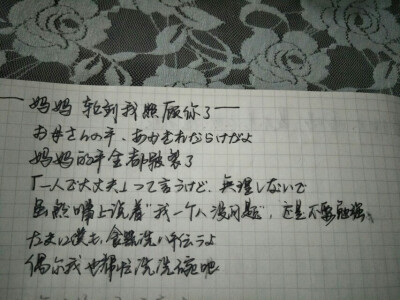 妈妈 轮到我照顾你了
お母さんの手、あかぎれだらけだよ
妈妈的手全都皲裂了
「一人で大丈夫」って言うけど、無理しないで
虽然嘴上说着“我一个人没问题”,还是不要勉强
たまには僕も、食器洗い手伝うよ
偶尔我也帮忙洗洗碗吧